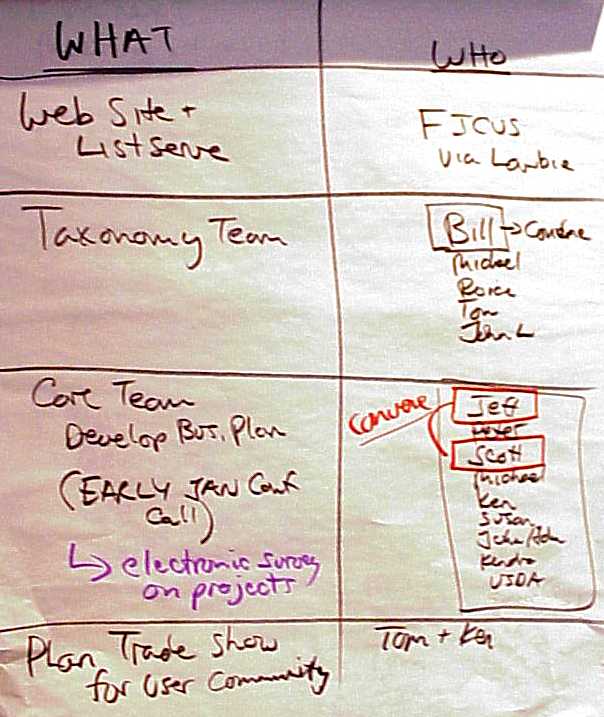 WHAT
WHO
Web Site +
Listserve
FJCUS
via Lawbie
Taxonomy Team
Bill → Convene
Michael
Tom
John L
Core Team
Develop Bus. Plan
(EARLY JAN Conf
Call)
↳ electronic survey
on projects
convene
Jeff
Peter
Scott
Michael
Ken
Susan
John/Adam
Kendra
USDA
Plan Trade Show
for User Community
Tom + Ken